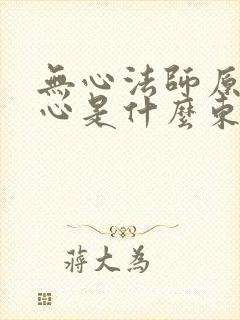 無心法師原
心是什麼東
蔣大為